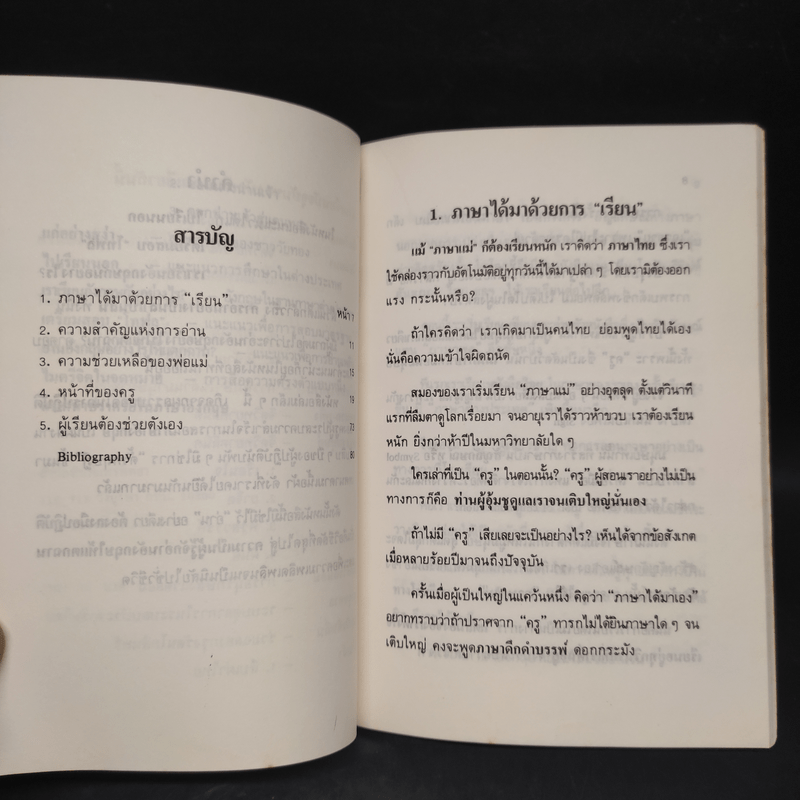 สารบัญ
หน้า
1. ภาษาได้มาด้วยการ “เรียน” 7
2. ความสำคัญแห่งการอ่าน 11
3. ความช่วยเหลือของพ่อแม่ 15
4. หน้าที่ของครู 19
5. ผู้เรียนต้องช่วยตัวเอง 73
Bibliography 80
1. ภาษาได้มาด้วยการ “เรียน”
แม้ “ภาษาแม่” ก็ต้องเรียนหนัก เราคิดว่า ภาษาไทย ซึ่งเรา
ใช้คล่องราวกับอัตโนมัติอยู่ทุกวันนี้ได้มาเปล่า ๆ โดยเรามิต้องออก
แรง กระนั้นหรือ?
ถ้าใครคิดว่า เราเกิดมาเป็นคนไทย ย่อมพูดไทยได้เอง
นั่นคือความเข้าใจผิดถนัด
สมองของเราเริ่มเรียน “ภาษาแม่” อย่างอุตลุด ตั้งแต่วินาที
แรกที่ลืมตาดูโลกเรื่อยมา จนอายุเราได้ราวห้าขวบ เราต้องเรียน
หนัก ยิ่งกว่าห้าปีในมหาวิทยาลัยใด ๆ
ใครเล่าที่เป็น “ครู” ในตอนนั้น? “ครู” ผู้สอนเราอย่างไม่เป็น
ทางการก็คือ ท่านผู้อุ้มชูดูแลเราจนเติบใหญ่นั่นเอง
ถ้าไม่มี “ครู” เสียเลยจะเป็นอย่างไร? เห็นได้จากข้อสังเกต
เมื่อหลายร้อยปีมาจนถึงปัจจุบัน
ครั้นเมื่อผู้เป็นใหญ่ในแคว้นหนึ่ง คิดว่า “ภาษาได้มาเอง”
อยากทราบว่าถ้าปราศจาก “ครู” ทารกไม่ได้ยินภาษาใด ๆ จน
เติบใหญ่ คงจะพูดภาษาดึกดำบรรพ์ ดอกกระมัง